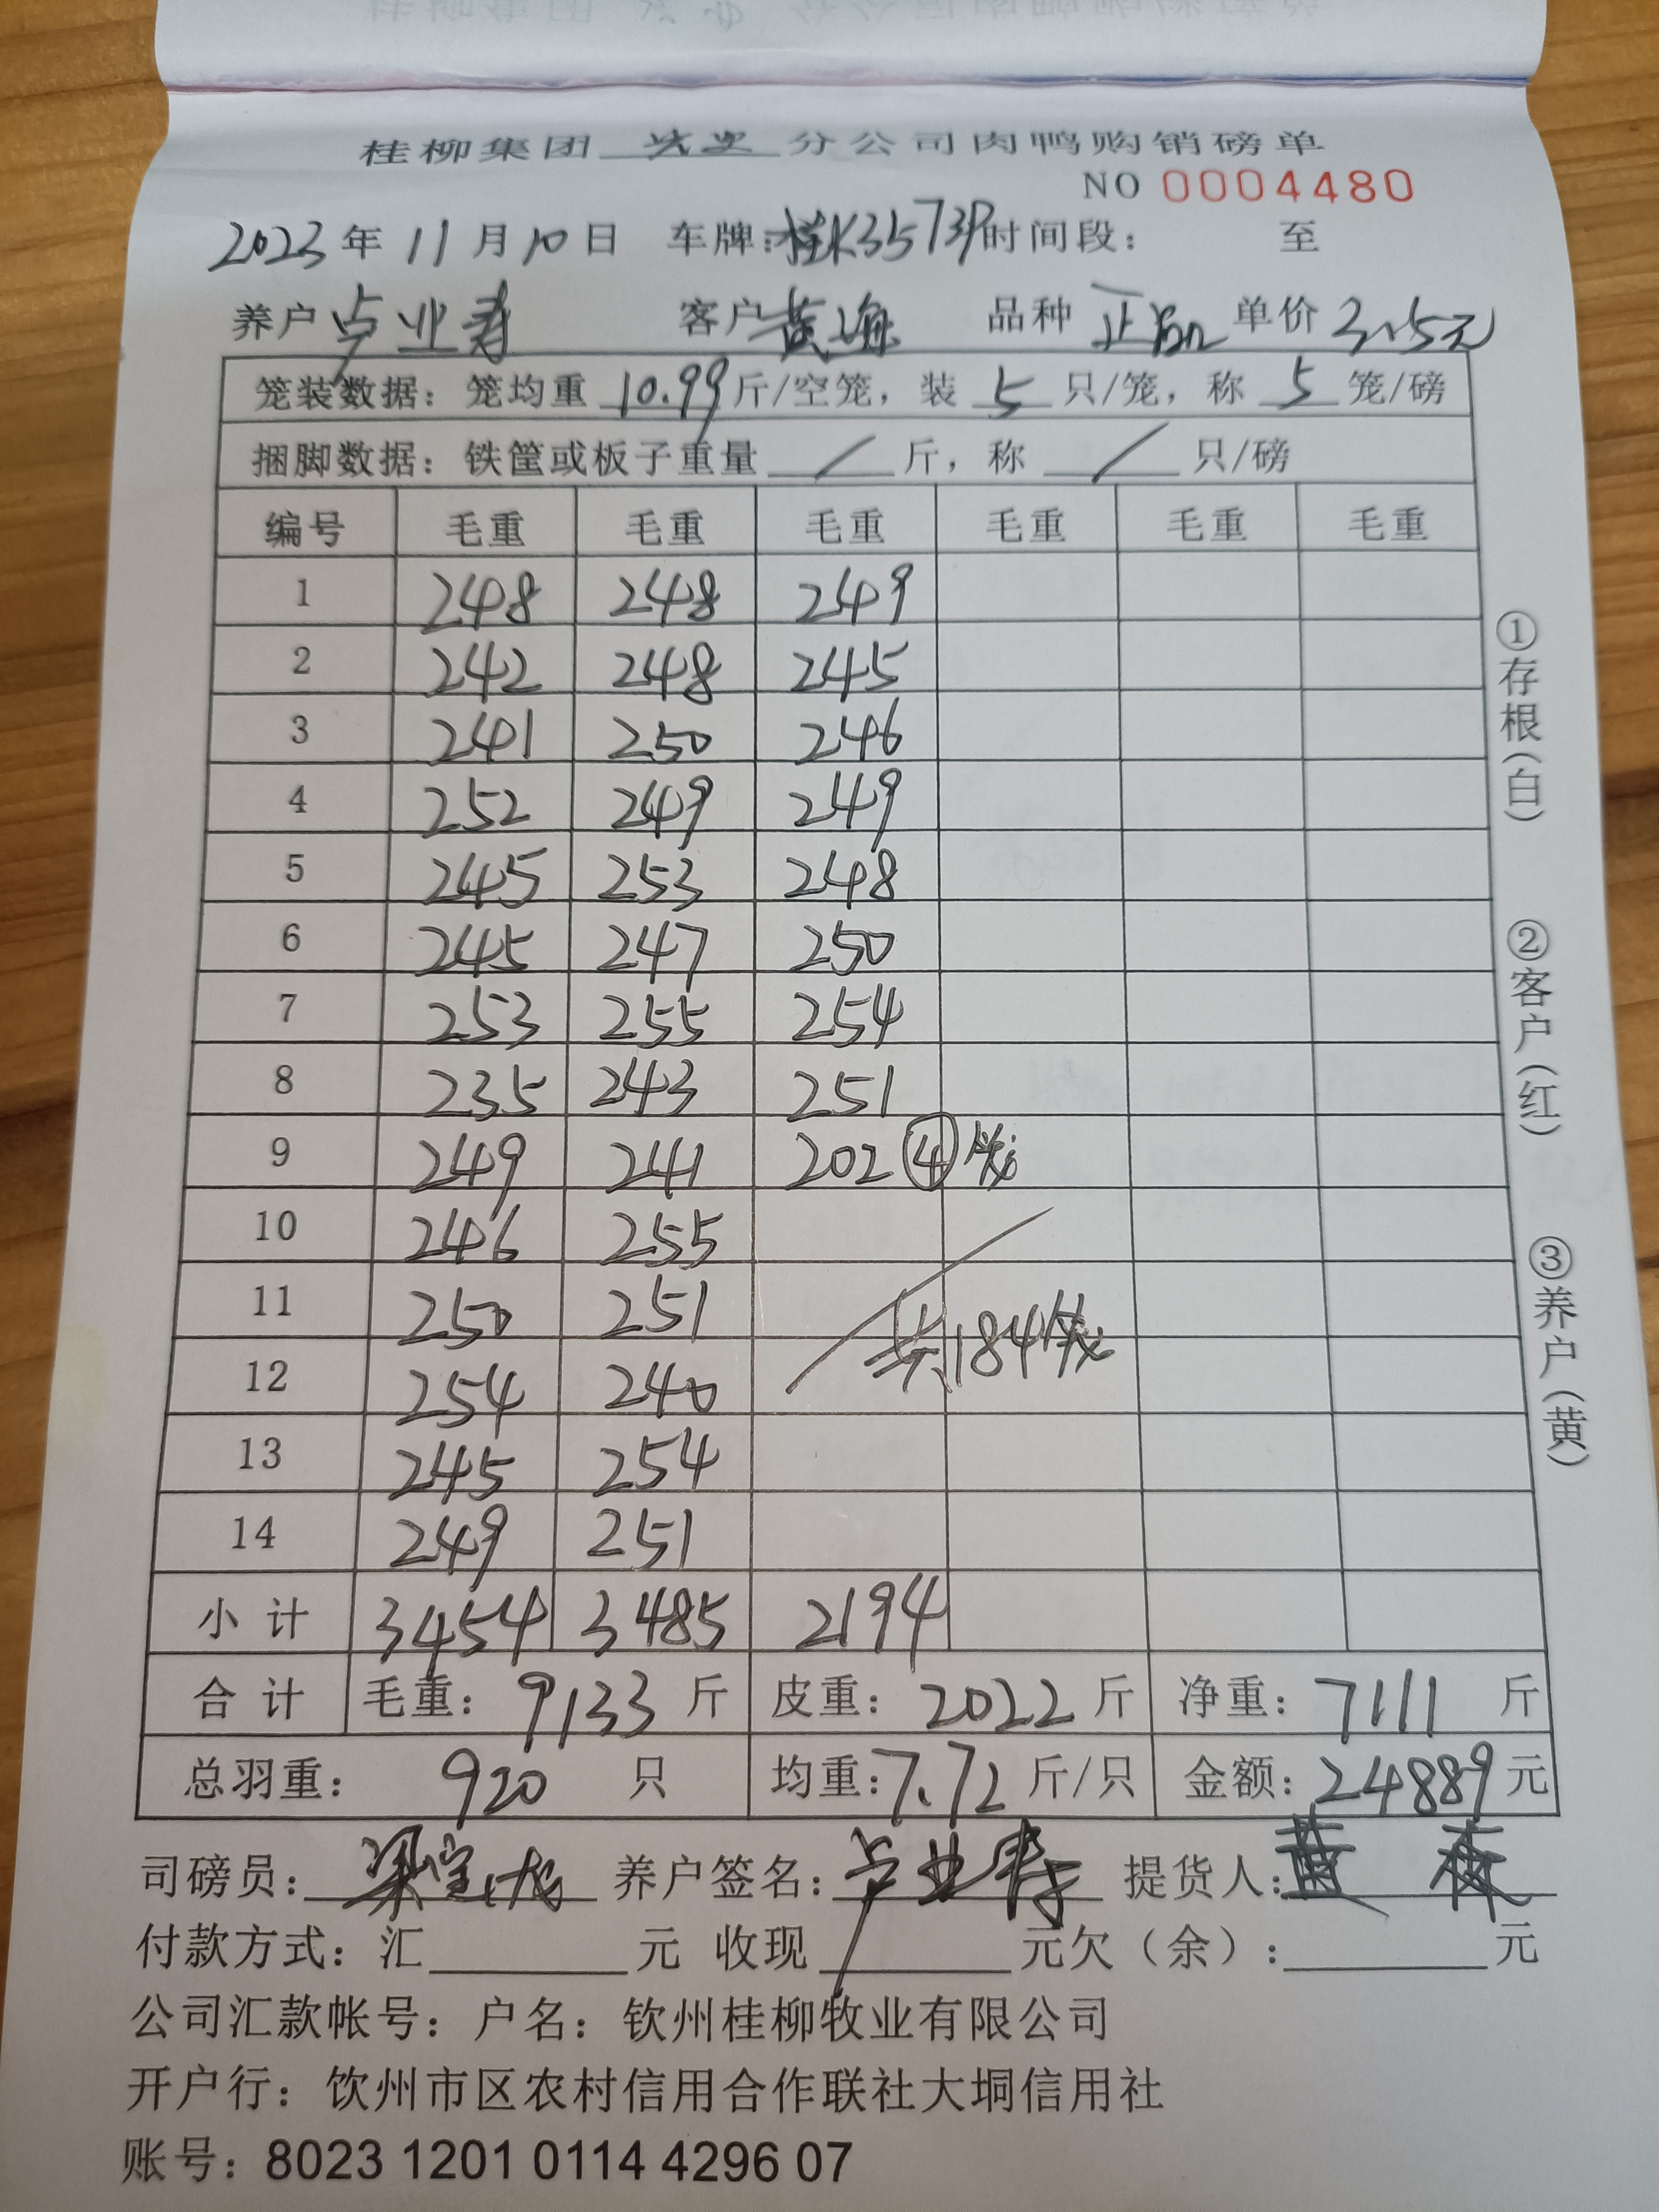 桂柳集团 分公司肉鸭购销磅单
NO 0004480
2023年11月10日 车牌:桂K3573P 时间段: 至
养户 卢业寿 客户 黄 品种 正品 单价 3.5元
笼装数据：笼均重 10.99 斤/空笼，装 5 只/笼，称 5 笼/磅
捆脚数据：铁筐或板子重量 / 斤，称 / 只/磅
编号 毛重 毛重 毛重 毛重 毛重 毛重
1 248 248 249
2 242 248 245
3 241 250 246
4 252 249 249
5 245 253 248
6 245 247 250
7 253 255 254
8 235 243 251
9 249 241 202 ④笼
10 246 255
11 250 251
共184笼
12 254 240
13 245 254
14 249 251
小计 3454 3485 2194
合计 毛重：9133 斤 皮重：2022 斤 净重：7111 斤
总羽重：920 只 均重：7.72 斤/只 金额：24889 元
司磅员： 养户签名：卢业寿 提货人：黄
付款方式：汇 元 收现 元欠（余）： 元
公司汇款帐号：户名：钦州桂柳牧业有限公司
开户行：饮州市区农村信用合作联社大垌信用社
账号：8023 1201 0114 4296 07
①存根（白）
②客户（红）
③养户（黄）